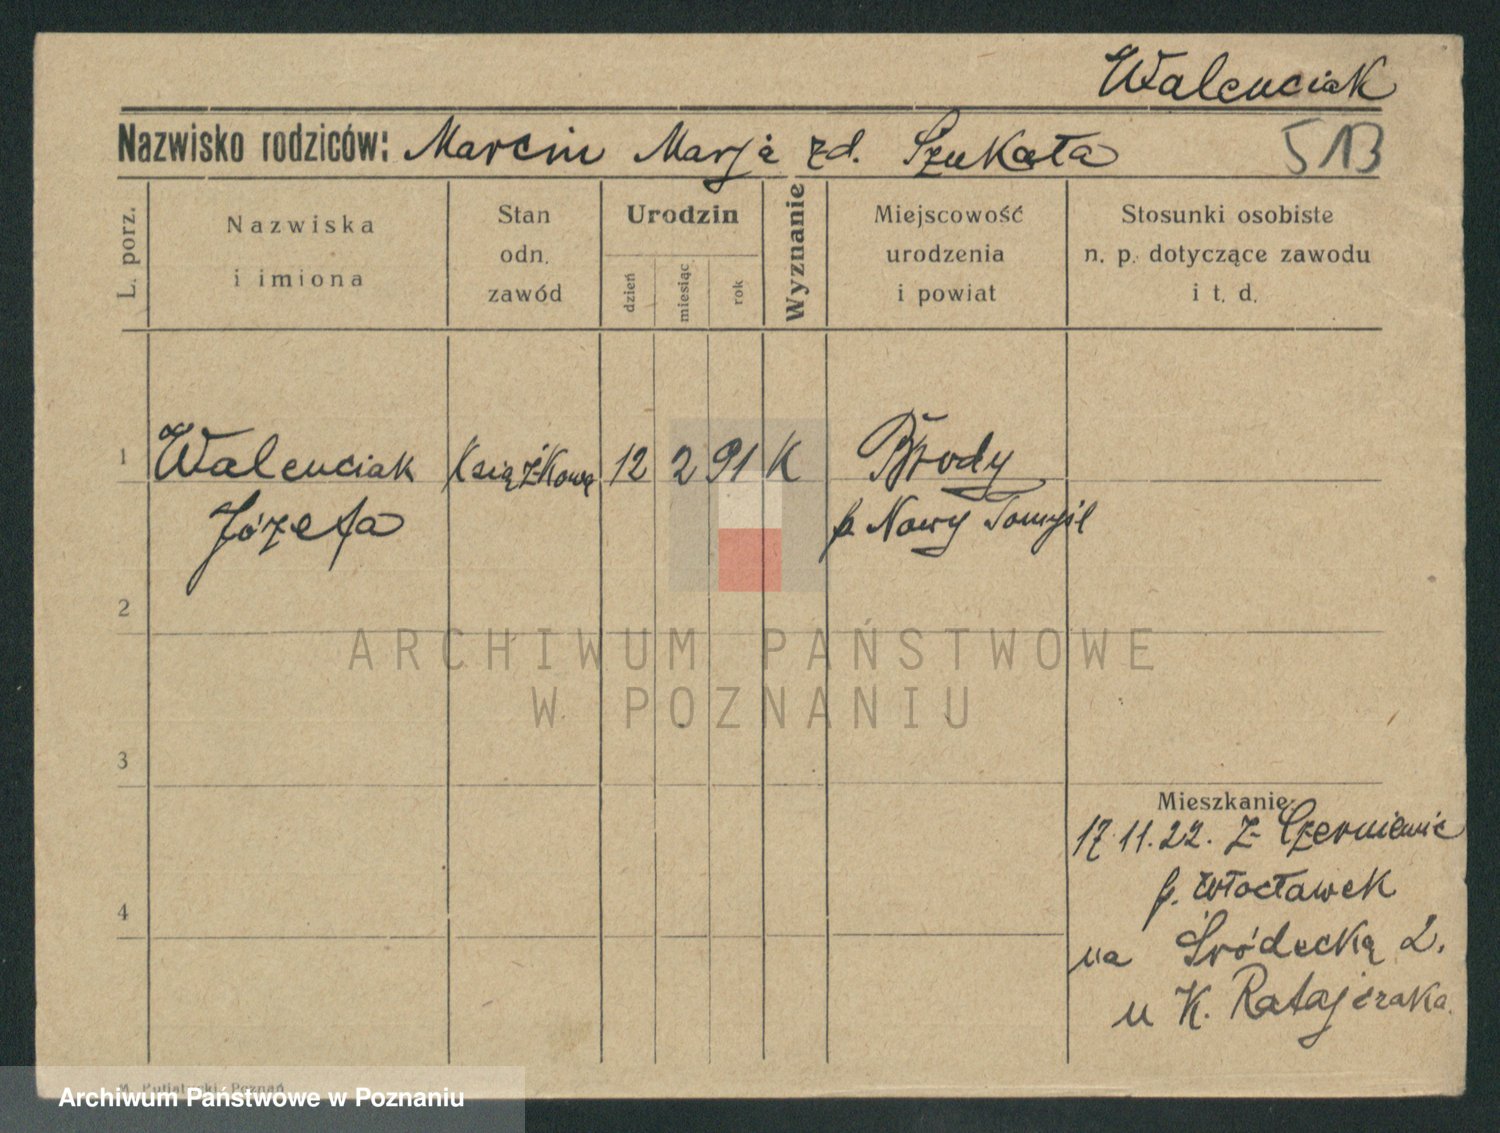 Walenciak
Nazwisko rodziców: Marcin Marja zd. Szukała
513
L. porz.
Nazwiska
i imiona
Stan
odn.
zawód
Urodzin
dzień
miesiąc
rok
Wyznanie
Miejscowość
urodzenia
i powiat
Stosunki osobiste
n. p. dotyczące zawodu
i t. d.
1 Walenciak Książkowa 12 2 91 K Brody
Józefa p. Nowy Tomyśl
2
ARCHIWUM PAŃSTWOWE
W POZNANIU
3
Mieszkanie:
17.11.22. z Czerniewic
p. Włocławek
4
na Śródecką 2.
u K. Ratajczaka.
Poznań
Archiwum Państwowe w Poznaniu